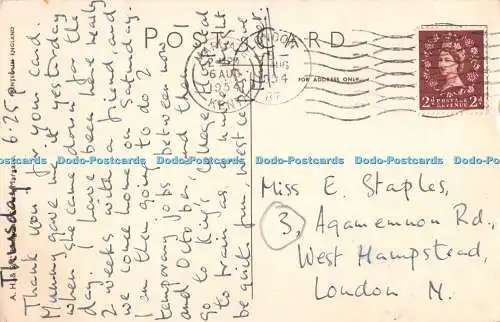 POST CARD
FOR ADDRESS ONLY.
6 AUG
1954
KENT
AUG
1954
POSTAGE
REVENUE
2d 2d
Thursday. 6.25
Thank you for your card.
Mummy gave me it yesterday
when she came down for the
day. I have been here nearly
2 weeks with a friend, and
we come home on Saturday.
I am then going to do 2
temporary jobs between now
and October, and then I
go to King's College Hospital
to train as a nurse. It should
be quite fun,
Miss E. Staples,
3, Agamemnon Rd.,
West Hampstead,
London N.
ENGLAND
A. H. & S.
Dodo-Postcards Dodo-Postcards Dodo-Postcards Dodo-Postcards